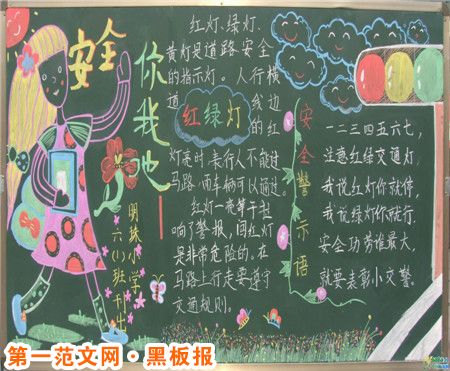 安全
你我他
红灯、绿灯、
黄灯是道路安全
的指示灯。人行横
道线边
的红
红绿灯
灯亮时,表行人不能过
马路,而车辆可以通过。
红灯一亮等于拉
响了警报,闯红灯
是非常危险的。在
马路上行走要遵守
交通规则。
安全警示语
一二三四五六七,
注意红绿交通灯,
我说红灯你就停,
我说绿灯你就行,
安全功劳谁最大,
就要表彰小交警。
明珠小学
六(1)班刊
第一范文网·黑板报